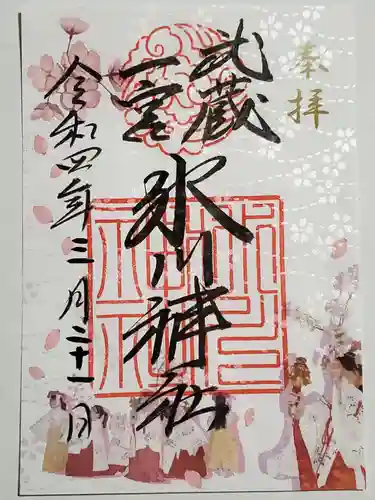 奉拝
武蔵
一宮
氷川神社
令和四年三月二十一日